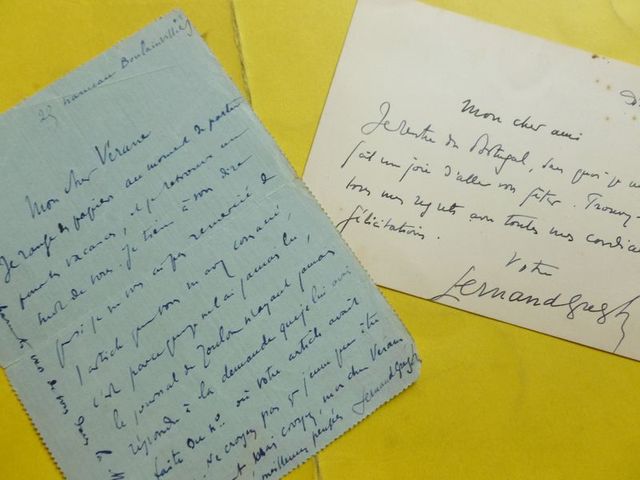 33 hameau Boulainvilliers
Mon cher Vérane
Je range des papiers au moment de partir
pour les vacances, et je retrouve un
mot de vous. Je tiens à vous dire
que si je ne vous ai pas remercié de
l'article que vous m'avez consacré,
c'est parce que je ne l'ai jamais lu,
le journal de Toulon n'ayant jamais
répondu à la demande que je lui avais
faite du n° où votre article avait
Ne croyez pas
mon cher Vérane
meilleures pensées
Fernand Gregh
Mon cher ami
Je rentre du Portugal, sans quoi je
fait une joie d'aller vous fêter. Trouvez
tous mes regrets avec toutes mes cordiales
félicitations.
Votre
Fernand Gregh